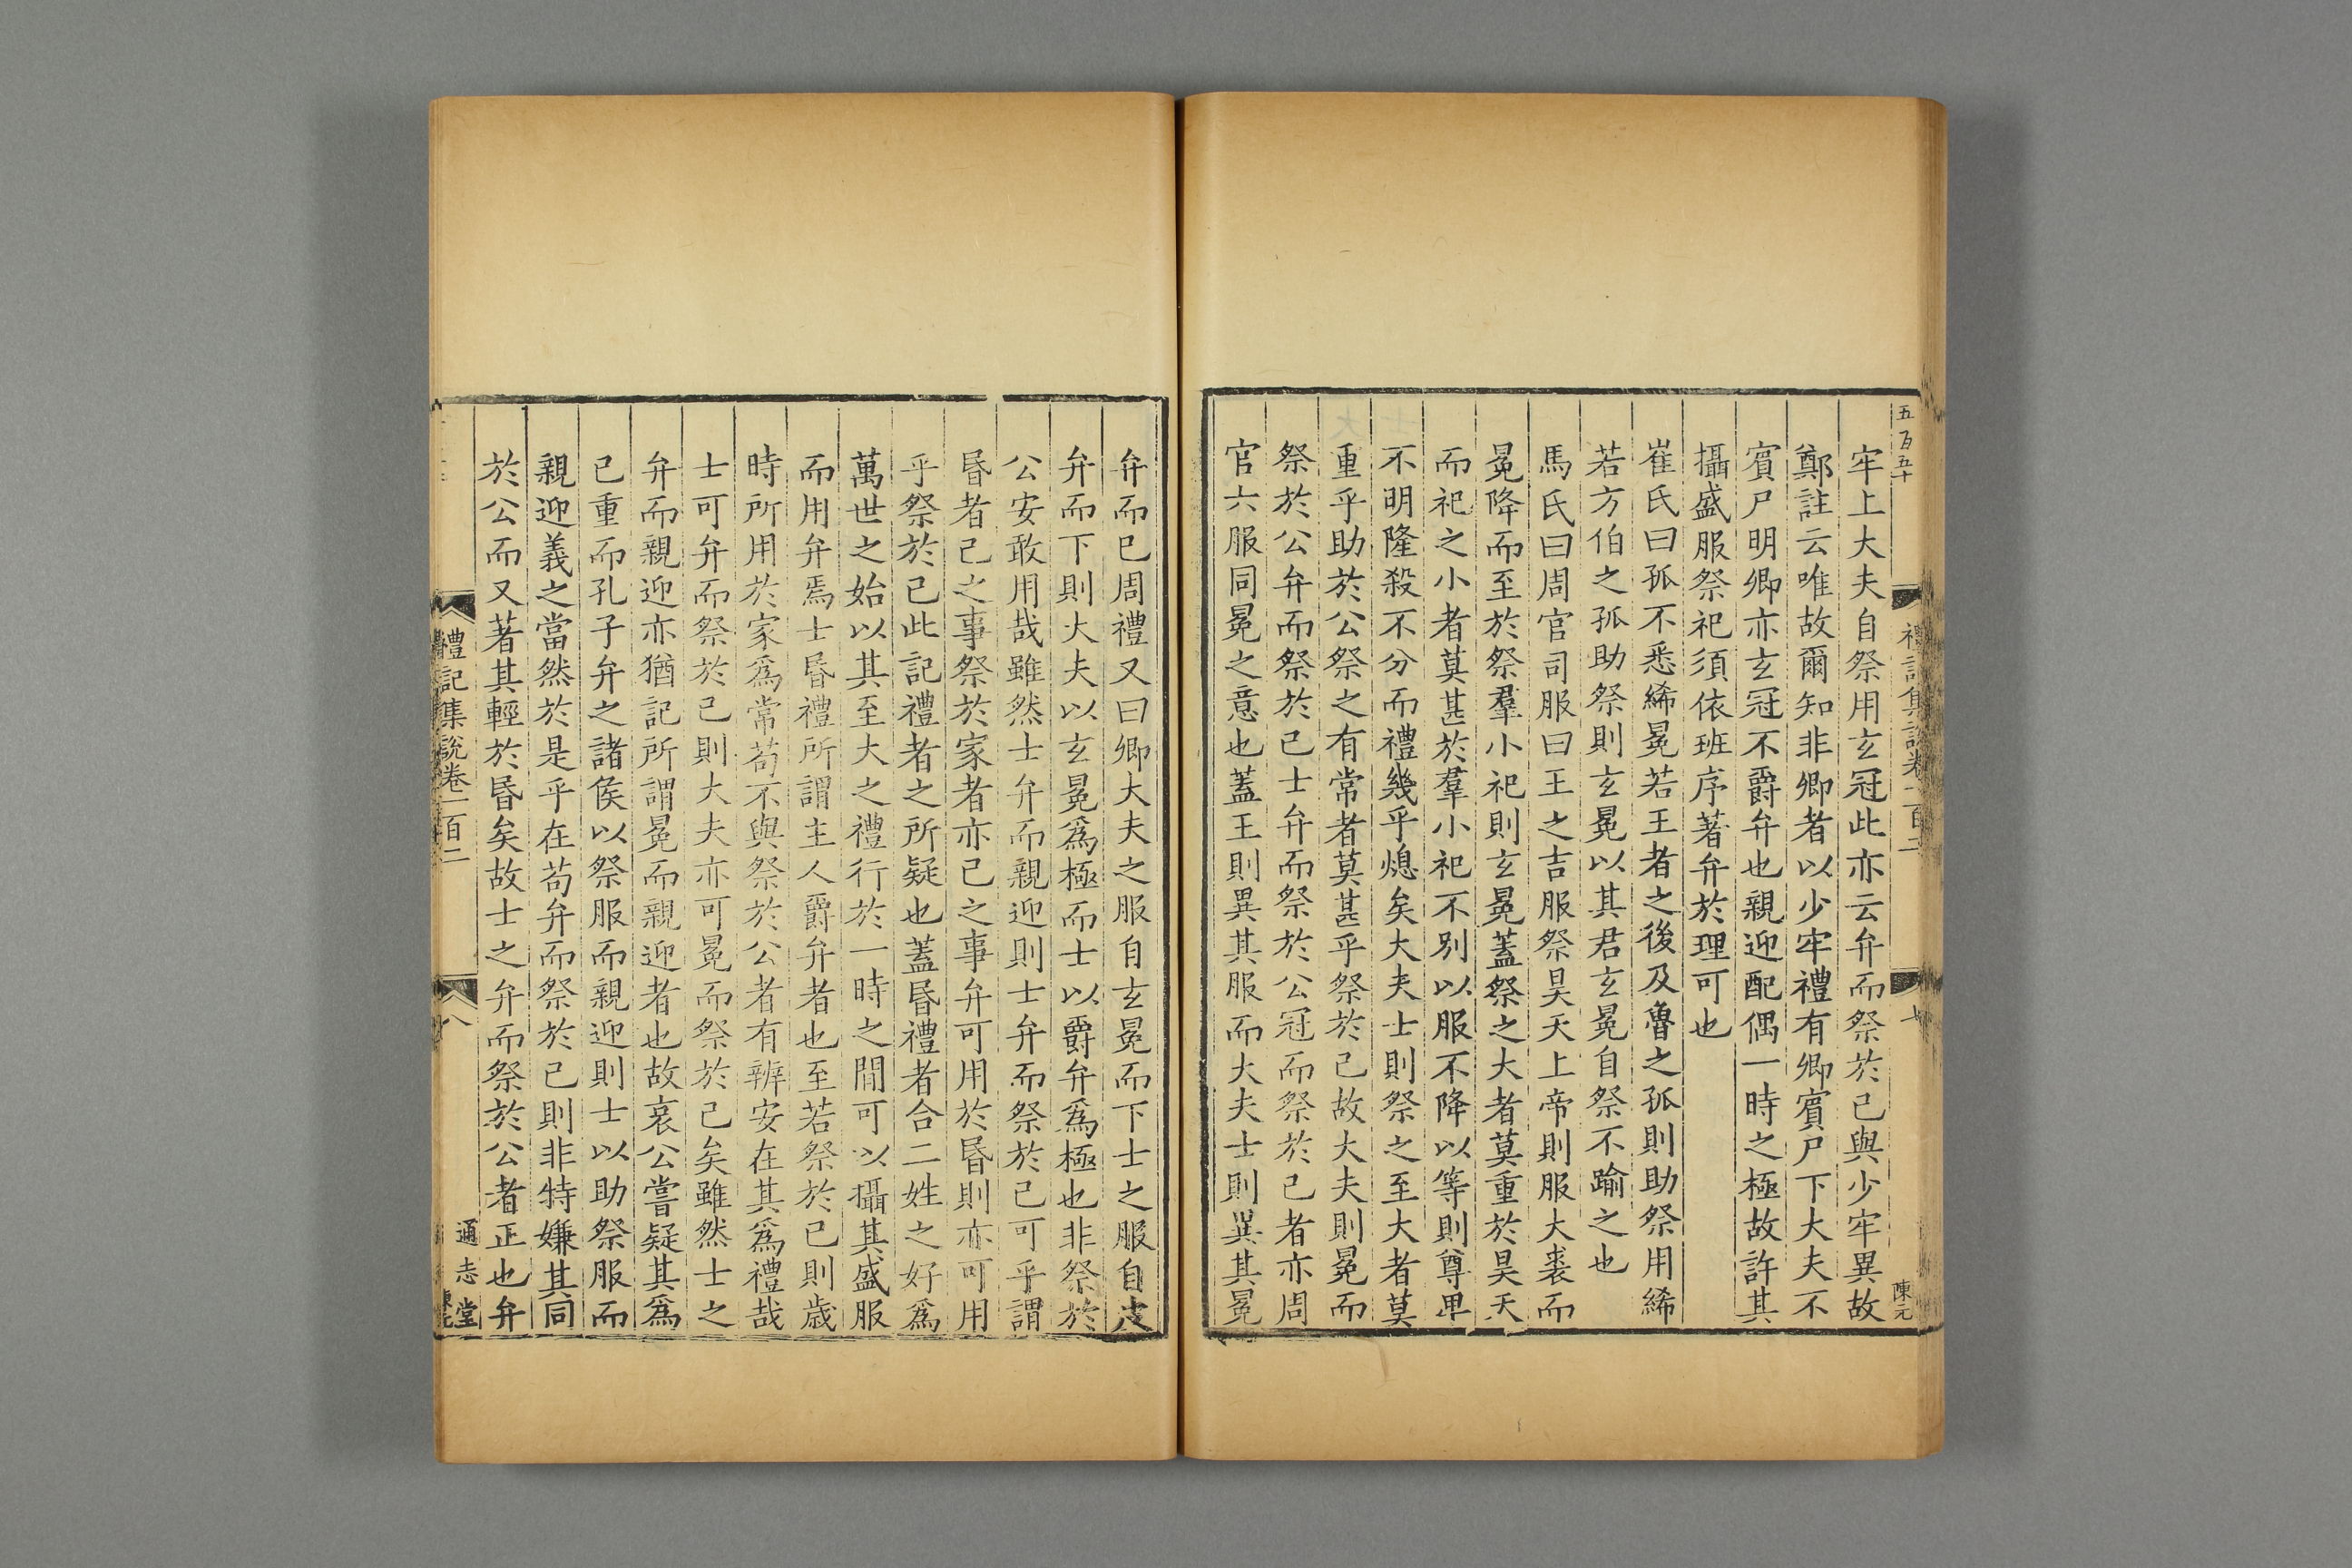 五百五十
禮記集說卷一百二
七
陳元
牢上大夫自祭用玄冠此亦云弁而祭於己與少牢異故
鄭註云唯故爾知非卿者以少牢禮有卿賓尸下大夫不
賓尸明卿亦玄冠不爵弁也親迎配偶一時之極故許其
攝盛服祭祀須依班序著弁於理可也
崔氏曰孤不悉絺冕若王者之後及魯之孤則助祭用絺
若方伯之孤助祭則玄冕以其君玄冕自祭不踰之也
馬氏曰周官司服曰王之吉服祭昊天上帝則服大裘而
冕降而至於祭羣小祀則玄冕蓋祭之大者莫重於昊天
而祀之小者莫甚於羣小祀不別以服不降以等則尊卑
不明隆殺不分而禮幾乎熄矣大夫士則祭之至大者莫
重乎助於公祭之有常者莫甚乎祭於己故大夫則冕而
祭於公弁而祭於己士弁而祭於公冠而祭於己者亦周
官六服同冕之意也蓋王則異其服而大夫士則異其冕
弁而已周禮又曰卿大夫之服自玄冕而下士之服自皮
弁而下則大夫以玄冕爲極而士以爵弁爲極也非祭於
公安敢用哉雖然士弁而親迎則士弁而祭於己可乎謂
昏者己之事祭於家者亦己之事弁可用於昏則亦可用
乎祭於己此記禮者之所疑也蓋昏禮者合二姓之好爲
萬世之始以其至大之禮行於一時之間可以攝其盛服
而用弁焉士昏禮所謂主人爵弁者也至若祭於己則歲
時所用於家爲常苟不與祭於公者有辨安在其爲禮哉
士可弁而祭於己則大夫亦可冕而祭於己矣雖然士之
弁而親迎亦猶記所謂冕而親迎者也故哀公嘗疑其爲
已重而孔子弁之諸侯以祭服而親迎則士以助祭服而
親迎義之當然於是乎在苟弁而祭於己則非特嫌其同
於公而又著其輕於昏矣故士之弁而祭於公者正也弁
禮記集說卷一百二
八
通志堂